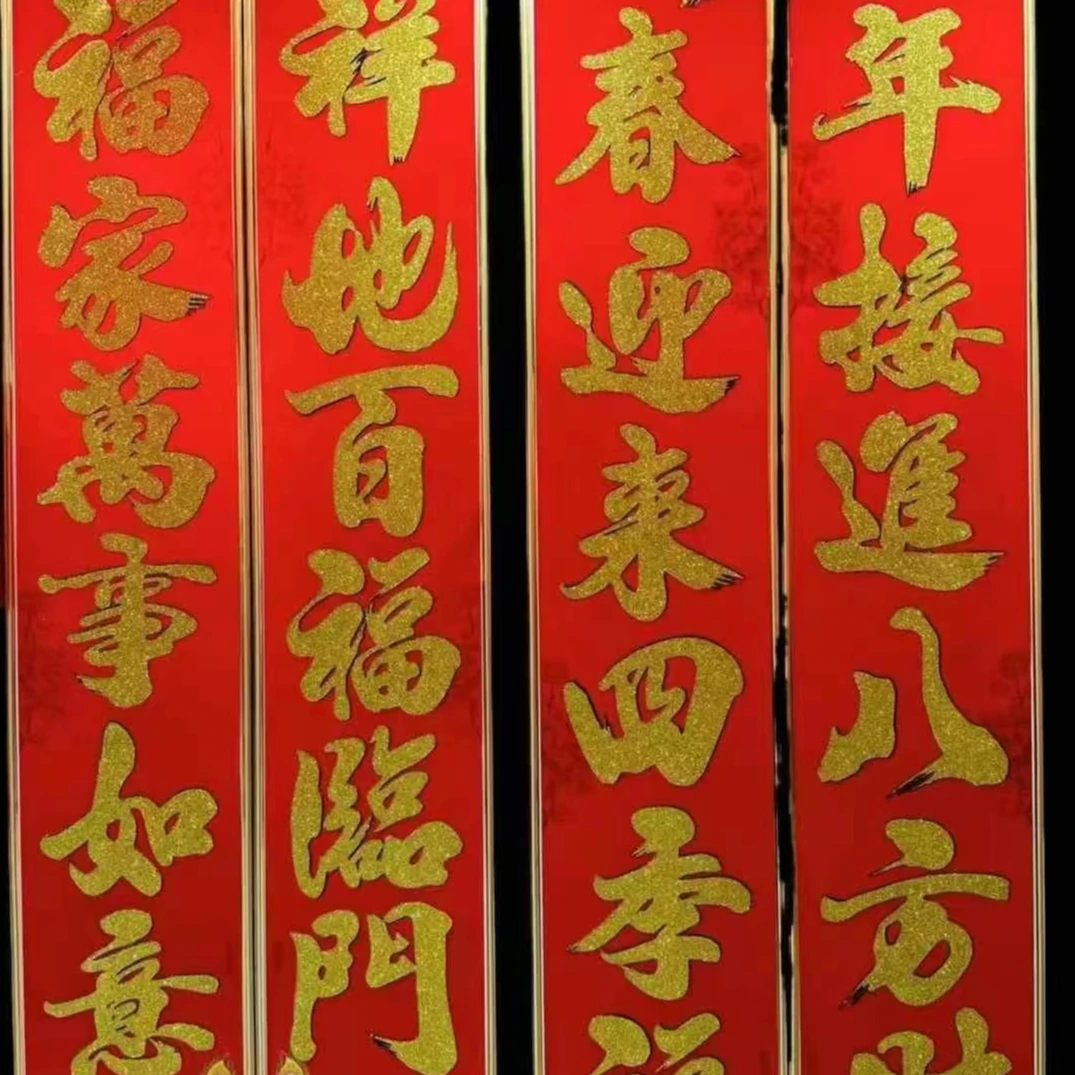 年接進八方財
春迎來四季
祥地百福臨門
福家萬事如意